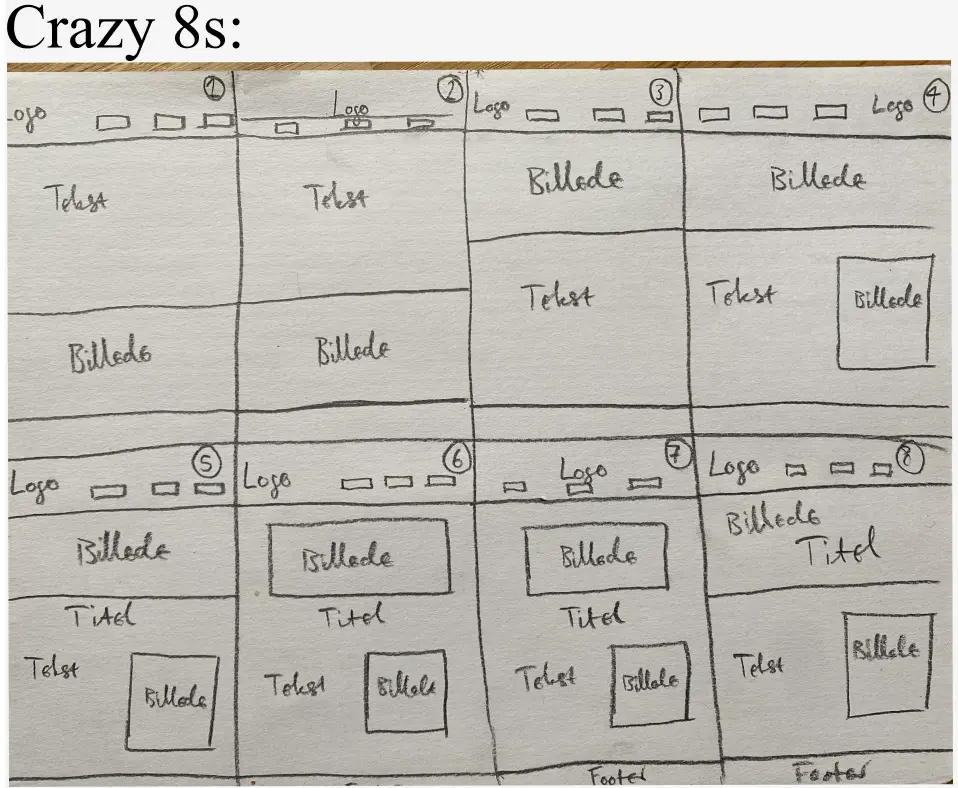 Crazy 8s:
Logo
1
Tekst
Billede
Logo
2
Tekst
Billede
Logo
3
Billede
Tekst
Logo
4
Billede
Tekst
Billede
Logo
5
Billede
Titel
Tekst
Billede
Logo
6
Billede
Titel
Tekst
Billede
Logo
7
Billede
Titel
Tekst
Billede
Footer
Logo
8
Billede
Titel
Tekst
Billede
Footer